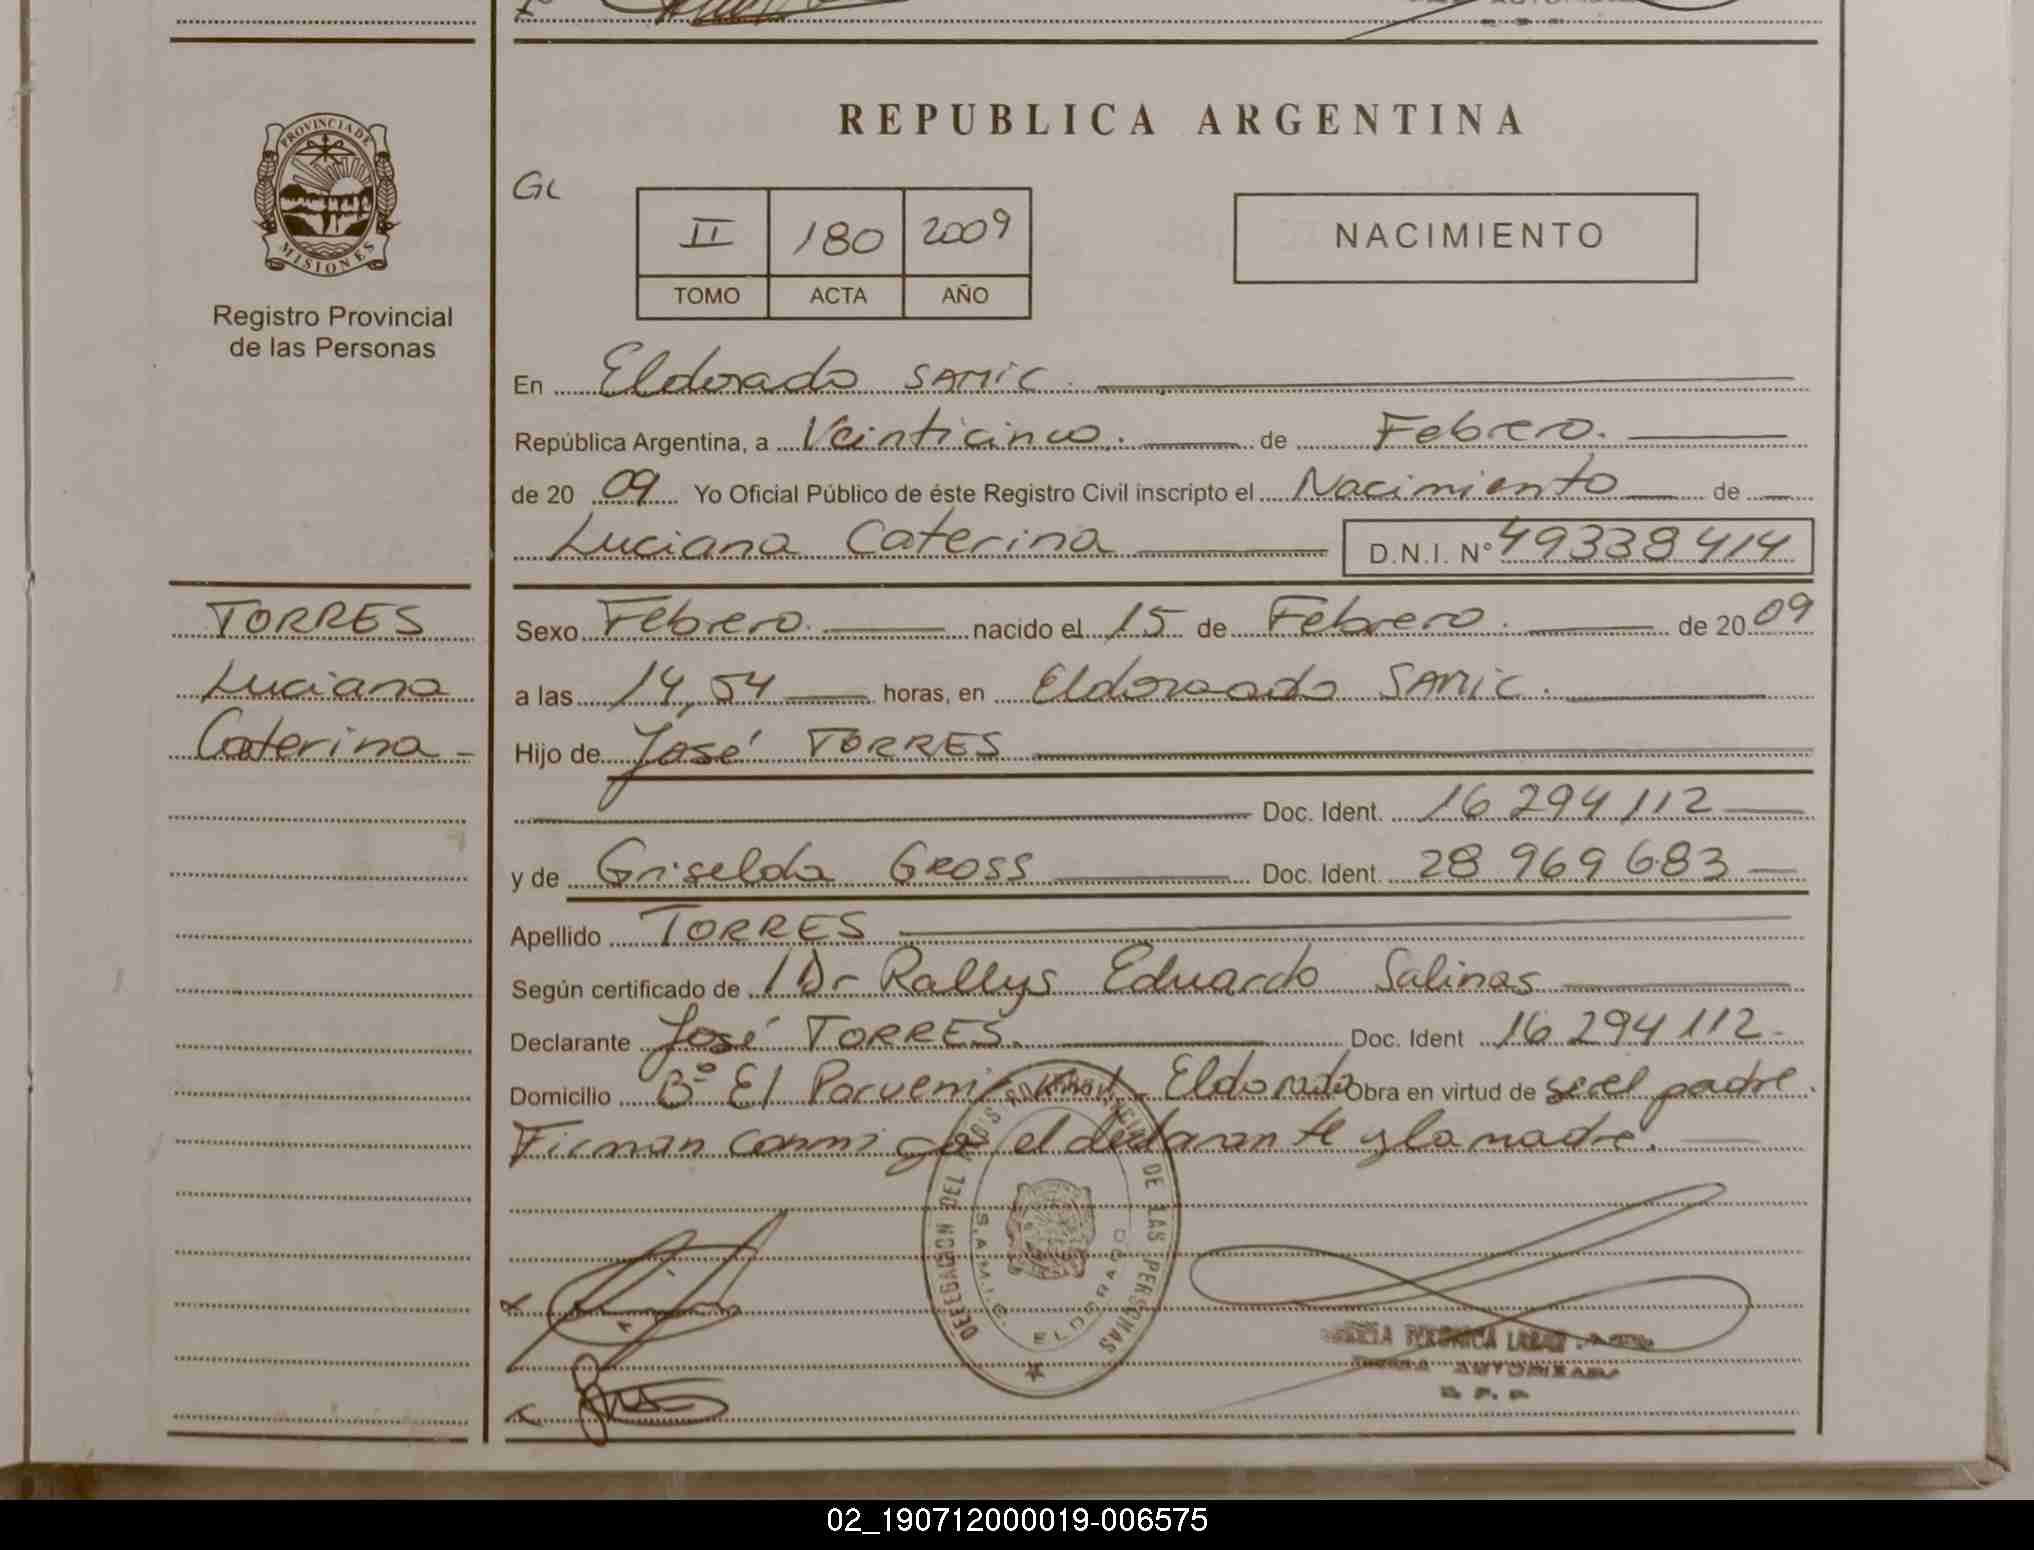 REPUBLICA ARGENTINA
PROVINCIA DE
MISIONES
Registro Provincial
de las Personas
GL
II 180 2009
TOMO ACTA AÑO
NACIMIENTO
En Eldorado SAMIC.
República Argentina, a Veinticinco. de Febrero.
de 20 09 Yo Oficial Público de éste Registro Civil inscripto el Nacimiento de
Luciana Caterina D.N.I. N° 49338414
TORRES
Luciana
Caterina -
Sexo Febrero. nacido el 15 de Febrero. de 20 09
a las 14,54 horas, en Eldoraado SAMIC.
Hijo de José TORRES
Doc. Ident. 16 294 112
y de Griselda GROSS Doc. Ident. 28 969 683
Apellido TORRES
Según certificado de Dr Rallys Eduardo Salinas
Declarante José TORRES. Doc. Ident 16 294 112-
Domicilio B° El Porvenir - Eldorado Obra en virtud de ser el padre.
Firman conmigo el declarante y la madre.
DELEGACION DEL DE LAS PERSONAS
S.A.M.I.C. ELDORADO
VERONICA
AUTORIZADA
02_190712000019-006575